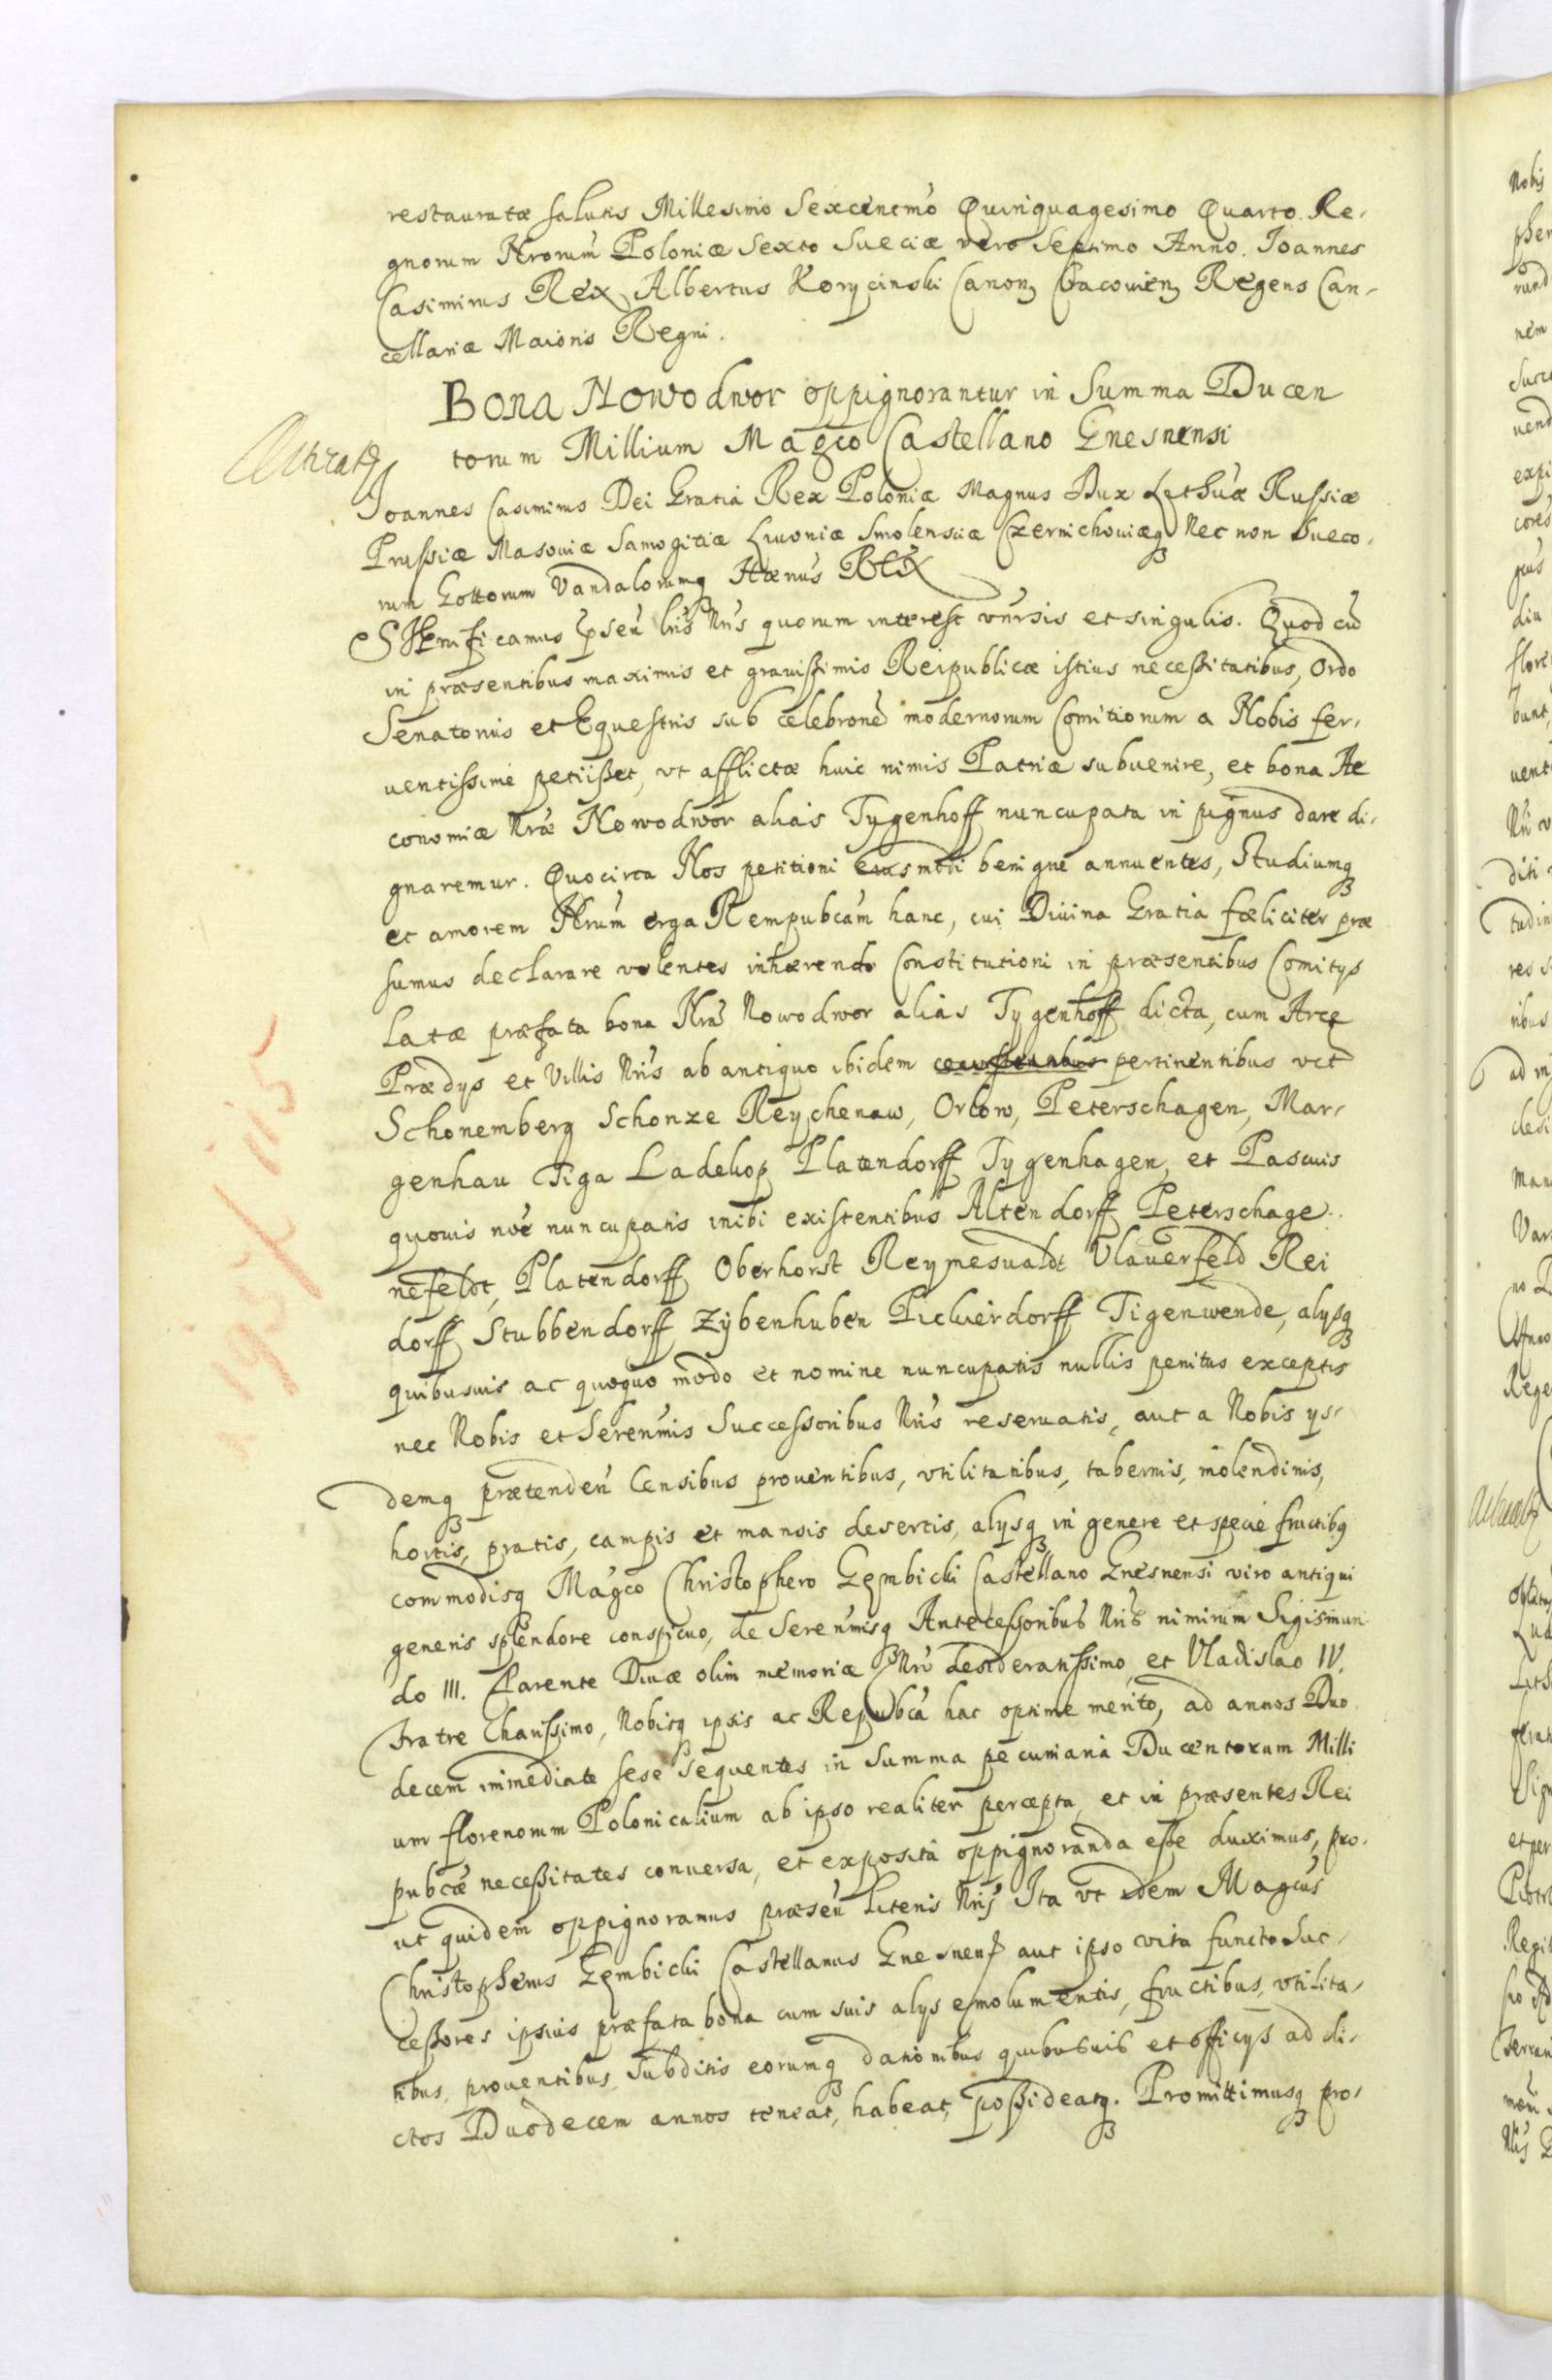 restauratæ salutis Millesimo Sexcentmo Quinquagesimo Quarto. Re-
gnorum Nrorum Poloniæ Sexto Sueciæ vero Septimo Anno. Joannes
Casimirus Rex, Albertus Korycinski Canon Cracouien Regens Can-
cellariæ Maioris Regni.
Bona Nowodwor oppignorantur in Summa Ducen
torum Millium Magco Castellano Gnesnensi
Joannes Casimirus Dei Gratia Rex Poloniæ Magnus Dux Lethuæ Russiæ
Prussiæ Masouiæ Samogitiæ Liuoniæ Smolensciæ Czernichouiæq Nec non Sueco-
rum Gottorum Vandalorumq Hærius Rex
Significamus pseu lris Nris quorum interest vnrsis et singulis. Quod cu
in præsentibus maximis et grauissimis Reipublicæ istius necessitatibus, Ordo
Senatorius et Equestris sub celebrone modernorum Comitiorum a Nobis fer-
uentissime petiisset, vt afflictæ huic nimis Patriæ subuenire, et bona Ae
conomiæ Nræ Nowodwor alias Tygenhoff nuncupata in pignus dare di-
gnaremur. Quocirca Nos petitioni eiusmodi benigne annuentes, Studiumq
et amorem Nrum erga Rempubcam hanc, cui Diuina Gratia fœliciter præ
sumus declarare volentes inhærendo Constitutioni in præsentibus Comitys
latæ præfata bona Nra Nowodwor alias Tygenhoff dicta, cum Arce
Prædys et Villis Nris ab antiquo ibidem pertinentibus vet
Schonemberg Schonze Reychenaw, Orlow, Peterschagen, Mar-
genhau Tiga Ladekop Platendorff Tygenhagen, et Pascuis
quouis noe nuncupatis inibi existentibus Altendorff Peterschage
nefeldt, Platendorff Oberhorst Reymesualdt Vlauerfeld Rei
dorff Stubbendorff Zÿbenhuben Picluerdorff Tigenwende, alysq
quibusuis ac quoquo modo et nomine nuncupatis nullis penitus exceptis
nec Nobis et Serenmis Successoribus Nris reseruatis, aut a Nobis ys-
demq prætenden Censibus prouentibus, vtilitatibus, tabernis, molendinis,
hortis, pratis, campis et mansis desertis, alysq in genere et specie fructibq
commodisq Magco Christophero Gembicki Castellano Gnesnensi viro antiqui
generis splendore conspicuo, de Serenmisq Antecessoribus Nris nimirum Sigismun
do III. Parente Diuæ olim memoriæ Nro desideratissimo, et Vladislao IV.
Fratre Charissimo, Nobisq ipsis ac Repubca hac optime merito, ad annos Duo
decem immediate sese sequentes in Summa pecuniaria Ducentorum Milli
um florenorum Polonicalium ab ipso realiter percepta, et in præsentes Rei
pubcæ necessitates conuersa, et exposita oppignoranda esse duximus, pro-
ut quidem oppignoramus præseu Literis Nris Ita vt idem Magcus
Christopherus Gembicki Castellanus Gnesnen aut ipso vita functo Suc-
cessores ipsius præfata bona cum suis alys emolumentis, fructibus, vtilita-
tibus, prouentibus, Subditis eorumq dationibus quibusuis et officys ad di-
ctos Duodecem annos teneat, habeat, possideatq. Promittimusq pro-